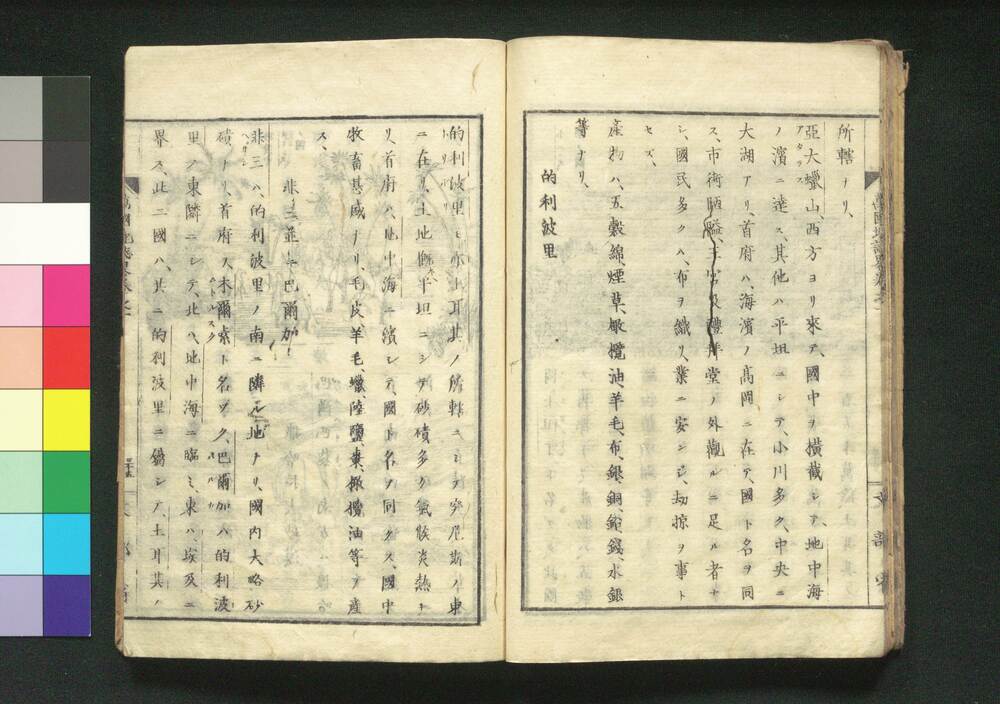 所轄ナリ、
亞大蠟山、西方ヨリ來テ、國中ヲ橫截シテ、地中海
アタラス
ノ濱ニ達ス、其他ハ平坦ニシテ、小川多ク、中央ニ
大湖アリ、首府ハ、海濱ノ髙岡ニ在テ、國ト名ヲ同
ス、市街陋隘、王宮及禮拜堂ノ外觀ルニ足ル者ナ
シ、國民多クハ、布ヲ織リ、業ニ安ンシ、劫掠ヲ事ト
セズ、
產物ハ、五穀、綿、煙草、橄欖油、羊毛、布、銀、銅、鉛、錢、水銀
等ナリ、
的利波里
的利波里モ亦土耳其ノ所轄ニシテ突尼斯ノ東
ニ在リ、土地平坦ニシテ砂磧多ク氣候炎熱ナ
リ、首府ハ、地中海ニ濱シテ、國ト名ヲ同クス、國中
牧畜甚盛ナリ、毛皮羊毛、蠟、陸鹽、棗、橄欖油等ヲ產
ス、
非三並ニ巴爾加
非三ハ、的利波里ノ南ニ隣ル地ナリ、國內大略砂
磧ナリ、首府ヲ木爾索ト名ヅク、巴爾加ハ的利波
里ノ東隣ニシテ、北ハ地中海ニ臨ミ、東ハ埃及ニ
界ス、此二國ハ、共ニ的利波里ニ屬シテ、土耳其ノ